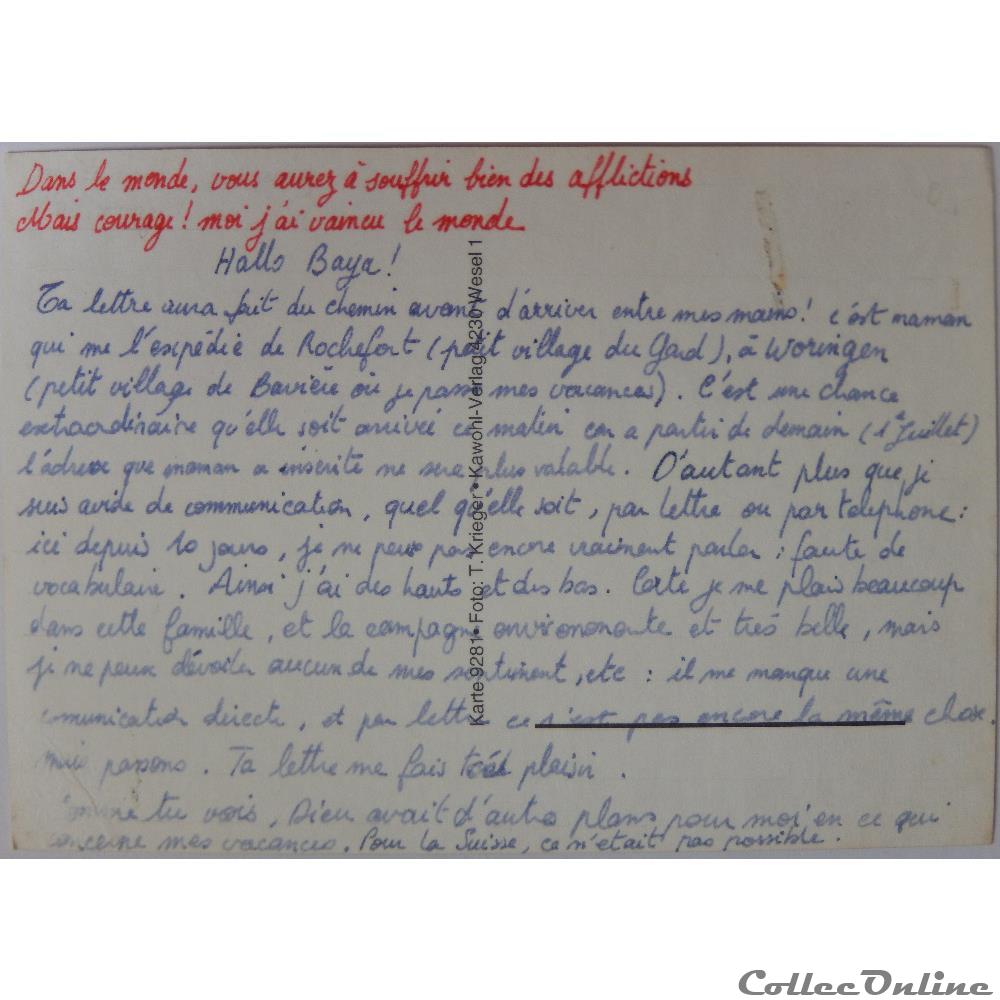 Dans le monde, vous aurez à souffrir bien des afflictions
Mais courage! moi j'ai vaincu le monde
Hallo Baya!
Ta lettre aura fait du chemin avant d'arriver entre mes mains! c'est maman
qui me l'expédié de Rochefort (petit village du Gard), à Woringen
(petit village de Bavière où je passe mes vacances). C'est une chance
extraordinaire qu'elle soit arrivée ce matin car a partir de demain (1er Juillet)
l'adresse que maman a inscrite ne sera plus valable. D'autant plus que je
suis avide de communication, quel qu'elle soit, par lettre ou par telephone:
ici depuis 10 jours, je ne peux pas encore vraiment parler: faute de
vocabulaire. Ainsi j'ai des hauts et des bas. Certe je me plais beaucoup
dans cette famille, et la campagne environonante et très belle, mais
je ne peux dévoiler aucun de mes sentiment, etc: il me manque une
comunication directe, et par lettre ce n'est pas encore la même chose.
mais passons. Ta lettre me fais plaisir.
Comme tu vois, Dieu avait d'autres plans pour moi en ce qui
concerne mes vacances. Pour la Suisse, ce n'était pas possible.
Karte 9281 • Foto: T. Krieger • Kawohl-Verlag 4230 Wesel 1
CollecOnline